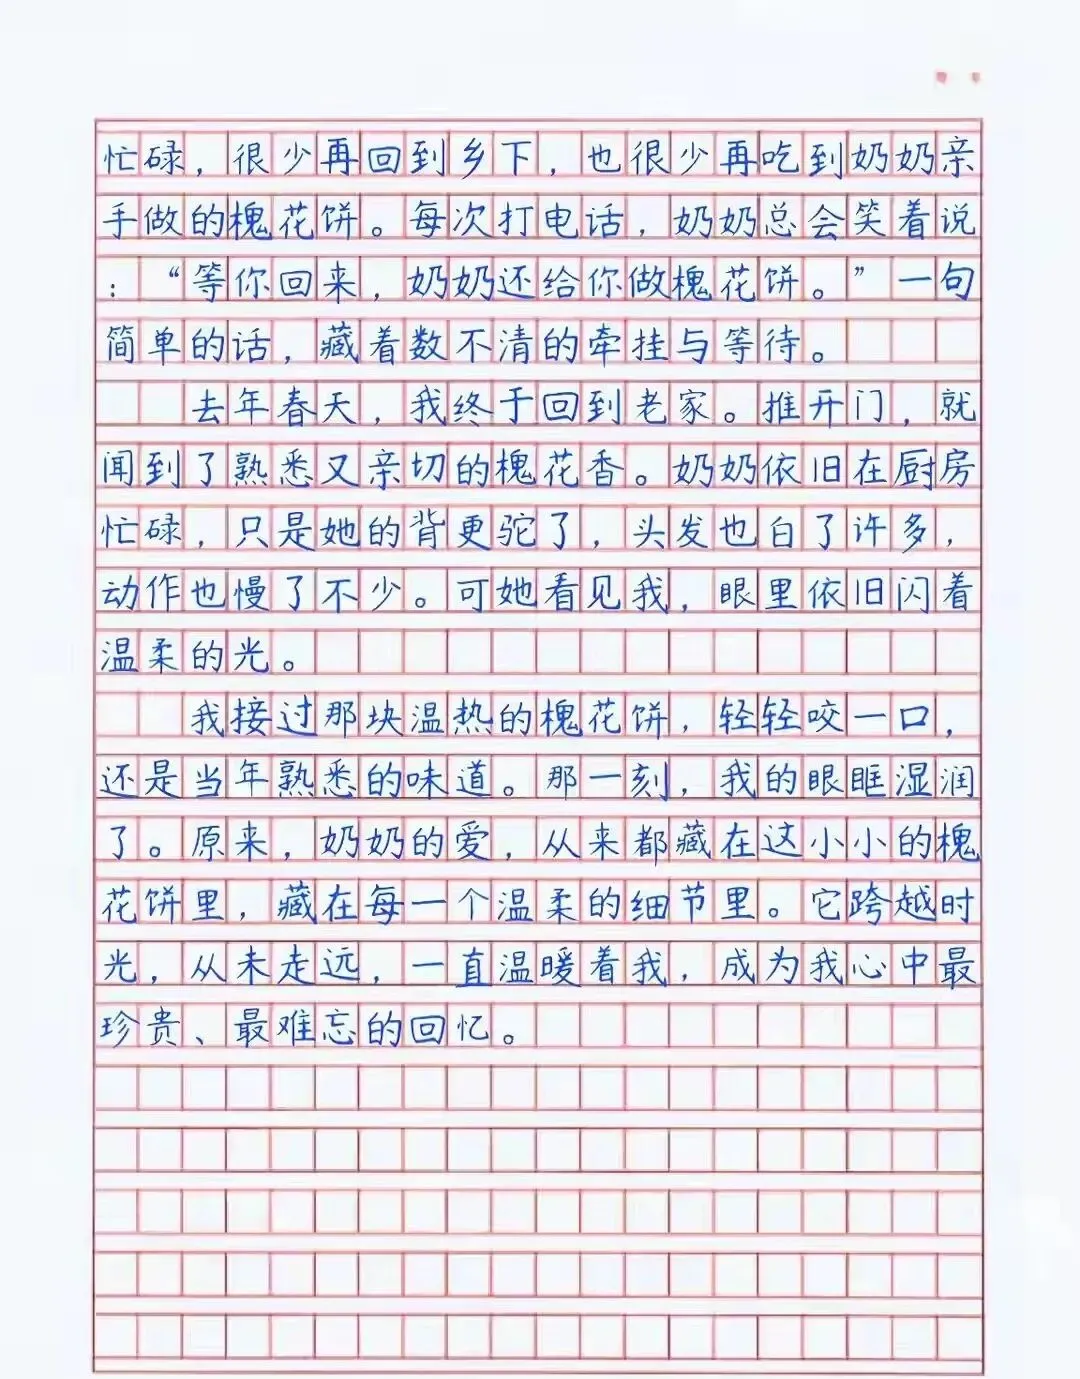 忙碌，很少再回到乡下，也很少再吃到奶奶亲
手做的槐花饼。每次打电话，奶奶总会笑着说
：“等你回来，奶奶还给你做槐花饼。”一句
简单的话，藏着数不清的牵挂与等待。
去年春天，我终于回到老家。推开门，就
闻到了熟悉又亲切的槐花香。奶奶依旧在厨房
忙碌，只是她的背更驼了，头发也白了许多，
动作也慢了不少。可她看见我，眼里依旧闪着
温柔的光。
我接过那块温热的槐花饼，轻轻咬一口，
还是当年熟悉的味道。那一刻，我的眼眶湿润
了。原来，奶奶的爱，从来都藏在这小小的槐
花饼里，藏在每一个温柔的细节里。它跨越时
光，从未走远，一直温暖着我，成为我心中最
珍贵、最难忘的回忆。